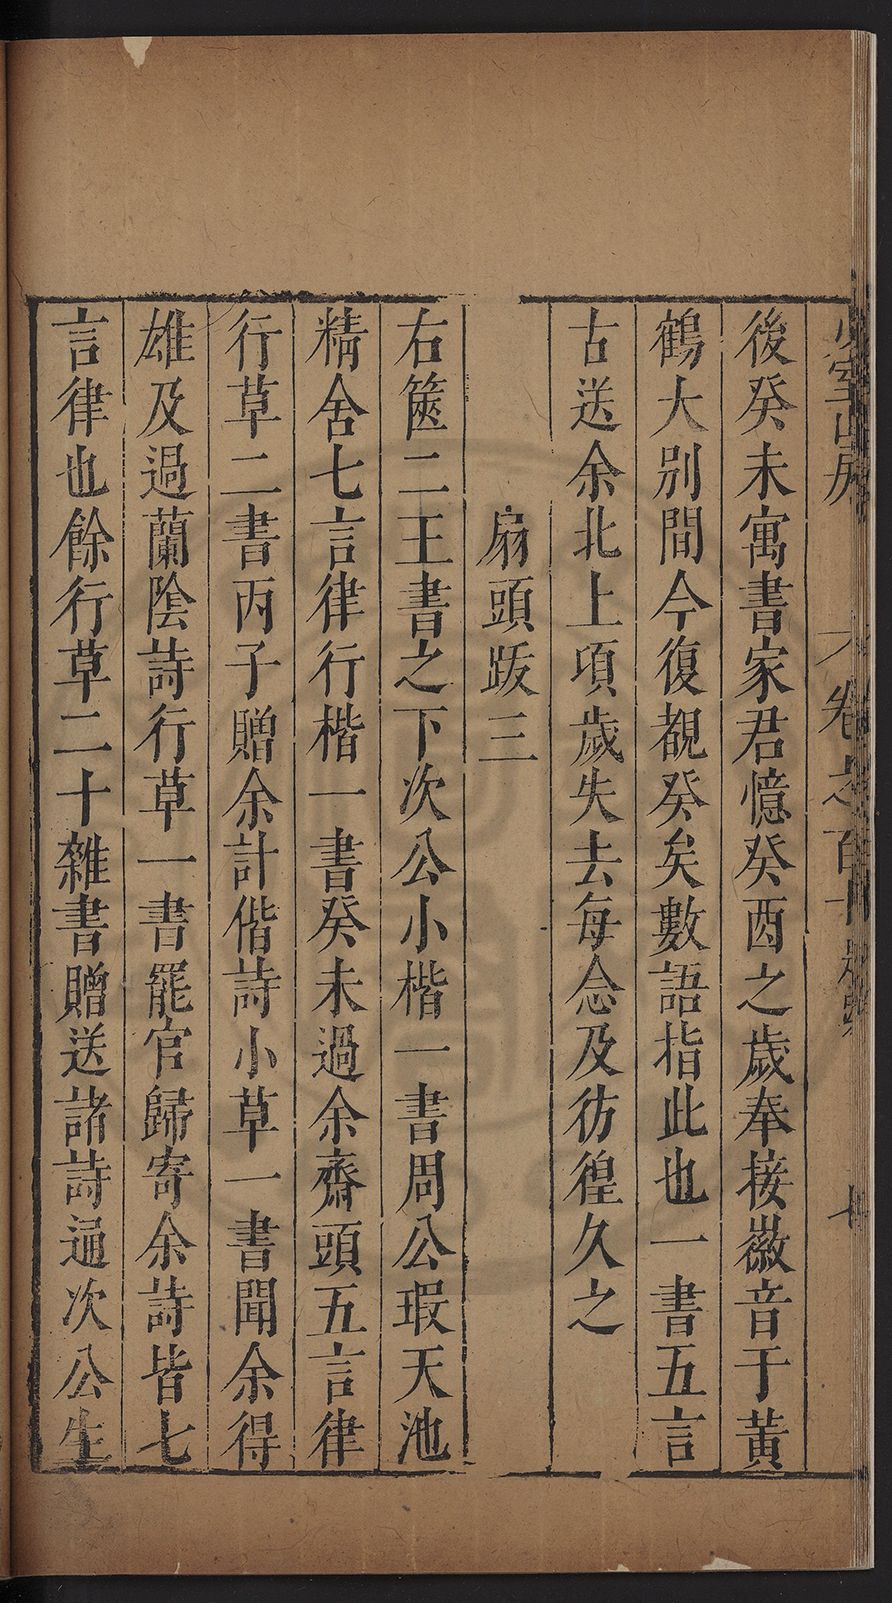 少室山房 卷之百十 七
後癸未寓書家君憶癸酉之歲奉接徽音于黃
鶴大别間今復覩癸矣數語指此也一書五言
古送余北上項歲失去每念及彷徨久之
扇頭跋三
右箑二王書之下次公小楷一書周公瑕天池
精舍七言律行楷一書癸未過余齋頭五言律
行草二書丙子贈余計偕詩小草一書聞余得
雄及過蘭陰詩行草一書罷官歸寄余詩皆七
言律也餘行草二十雜書贈送諸詩通次公生